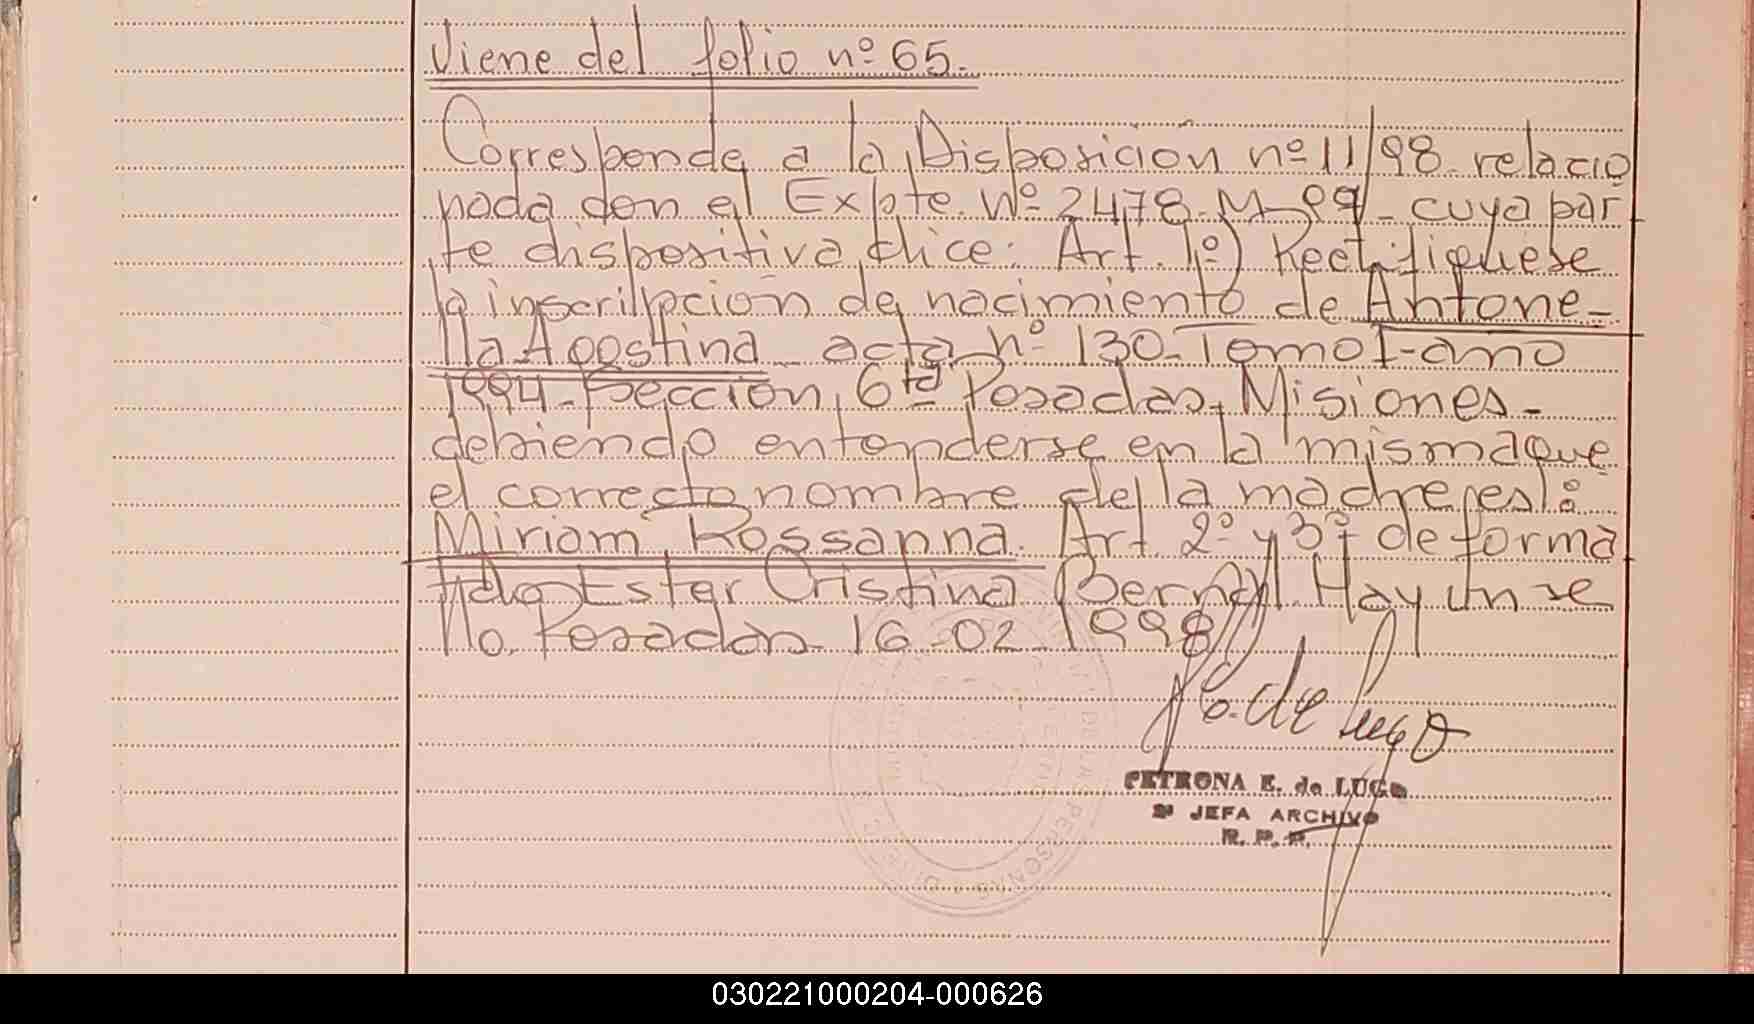 Viene del folio nº 65.
Corresponde a la Disposición nº 11/98. relacio
nada con el Expte. Nº 2478-M-99- cuya par
te dispositiva dice: Art. 1º) Rectifiquese
la inscripción de nacimiento de Antone-
lla Agostina acta nº 130-Tomo I-año
1994-Sección 6ta Posadas, Misiones-
debiendo entenderse en la misma que
el correcto nombre de la madre es:
Miriam Rossanna. Art. 2º y 3º de forma
Fdo Ester Cristina Bernal. Hay un se
llo. Posadas 16-02-1998
P. de Lugo
PETRONA E. de LUGO
2ª JEFA ARCHIVO
R. P. P.
030221000204-000626